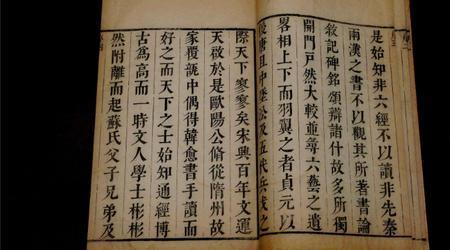 是始知非六經不以讀非先秦
兩漢之書不以觀其所著書論
敘記碑銘頌辯諸什故多所獨
開門戸然大較並尋六藝之遺
畧相上下而羽翼之者貞元以
後唐且中墜沿及五代兵戈之
際天下寥寥矣宋興百年文運
天啟於是歐陽公脩從隋州故
家覆瓿中偶得韓愈書手讀而
好之而天下之士始知通經博
古為高而一時文人學士彬彬
然附離而起蘇氏父子兄弟及